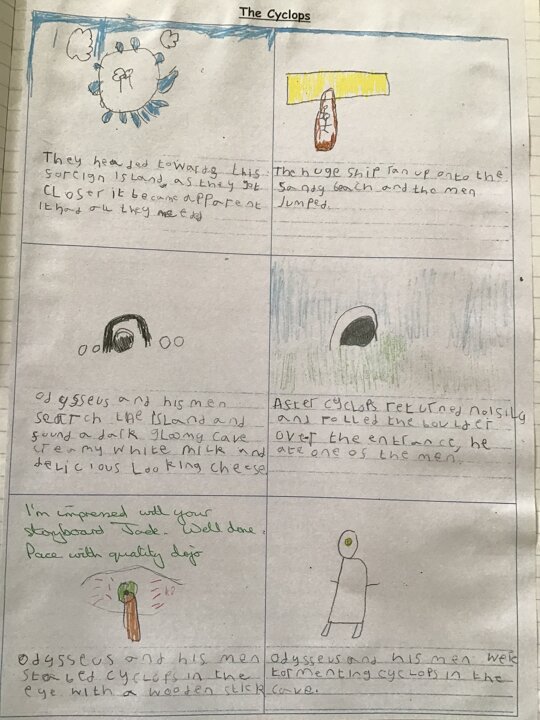 The Cyclops
They headed towards this
foreign Island, as they got
closer it became apparent
it had all they need
The huge ship ran up onto the
sandy beach and the men
jumped.
odysseus and his men
search the island and
found a dark gloomy cave
creamy white milk and
delicious looking cheese
After cyclops returned noisily
and rolled the boulder
over the entrance, he
ate one of the men.
I'm impressed with your
storyboard Jack. Well done.
Pace with quality dojo
odysseus and his men
stabed cyclops in the
eye with a wooden stick
odysseus and his men were
tormenting cyclops in the
cave.